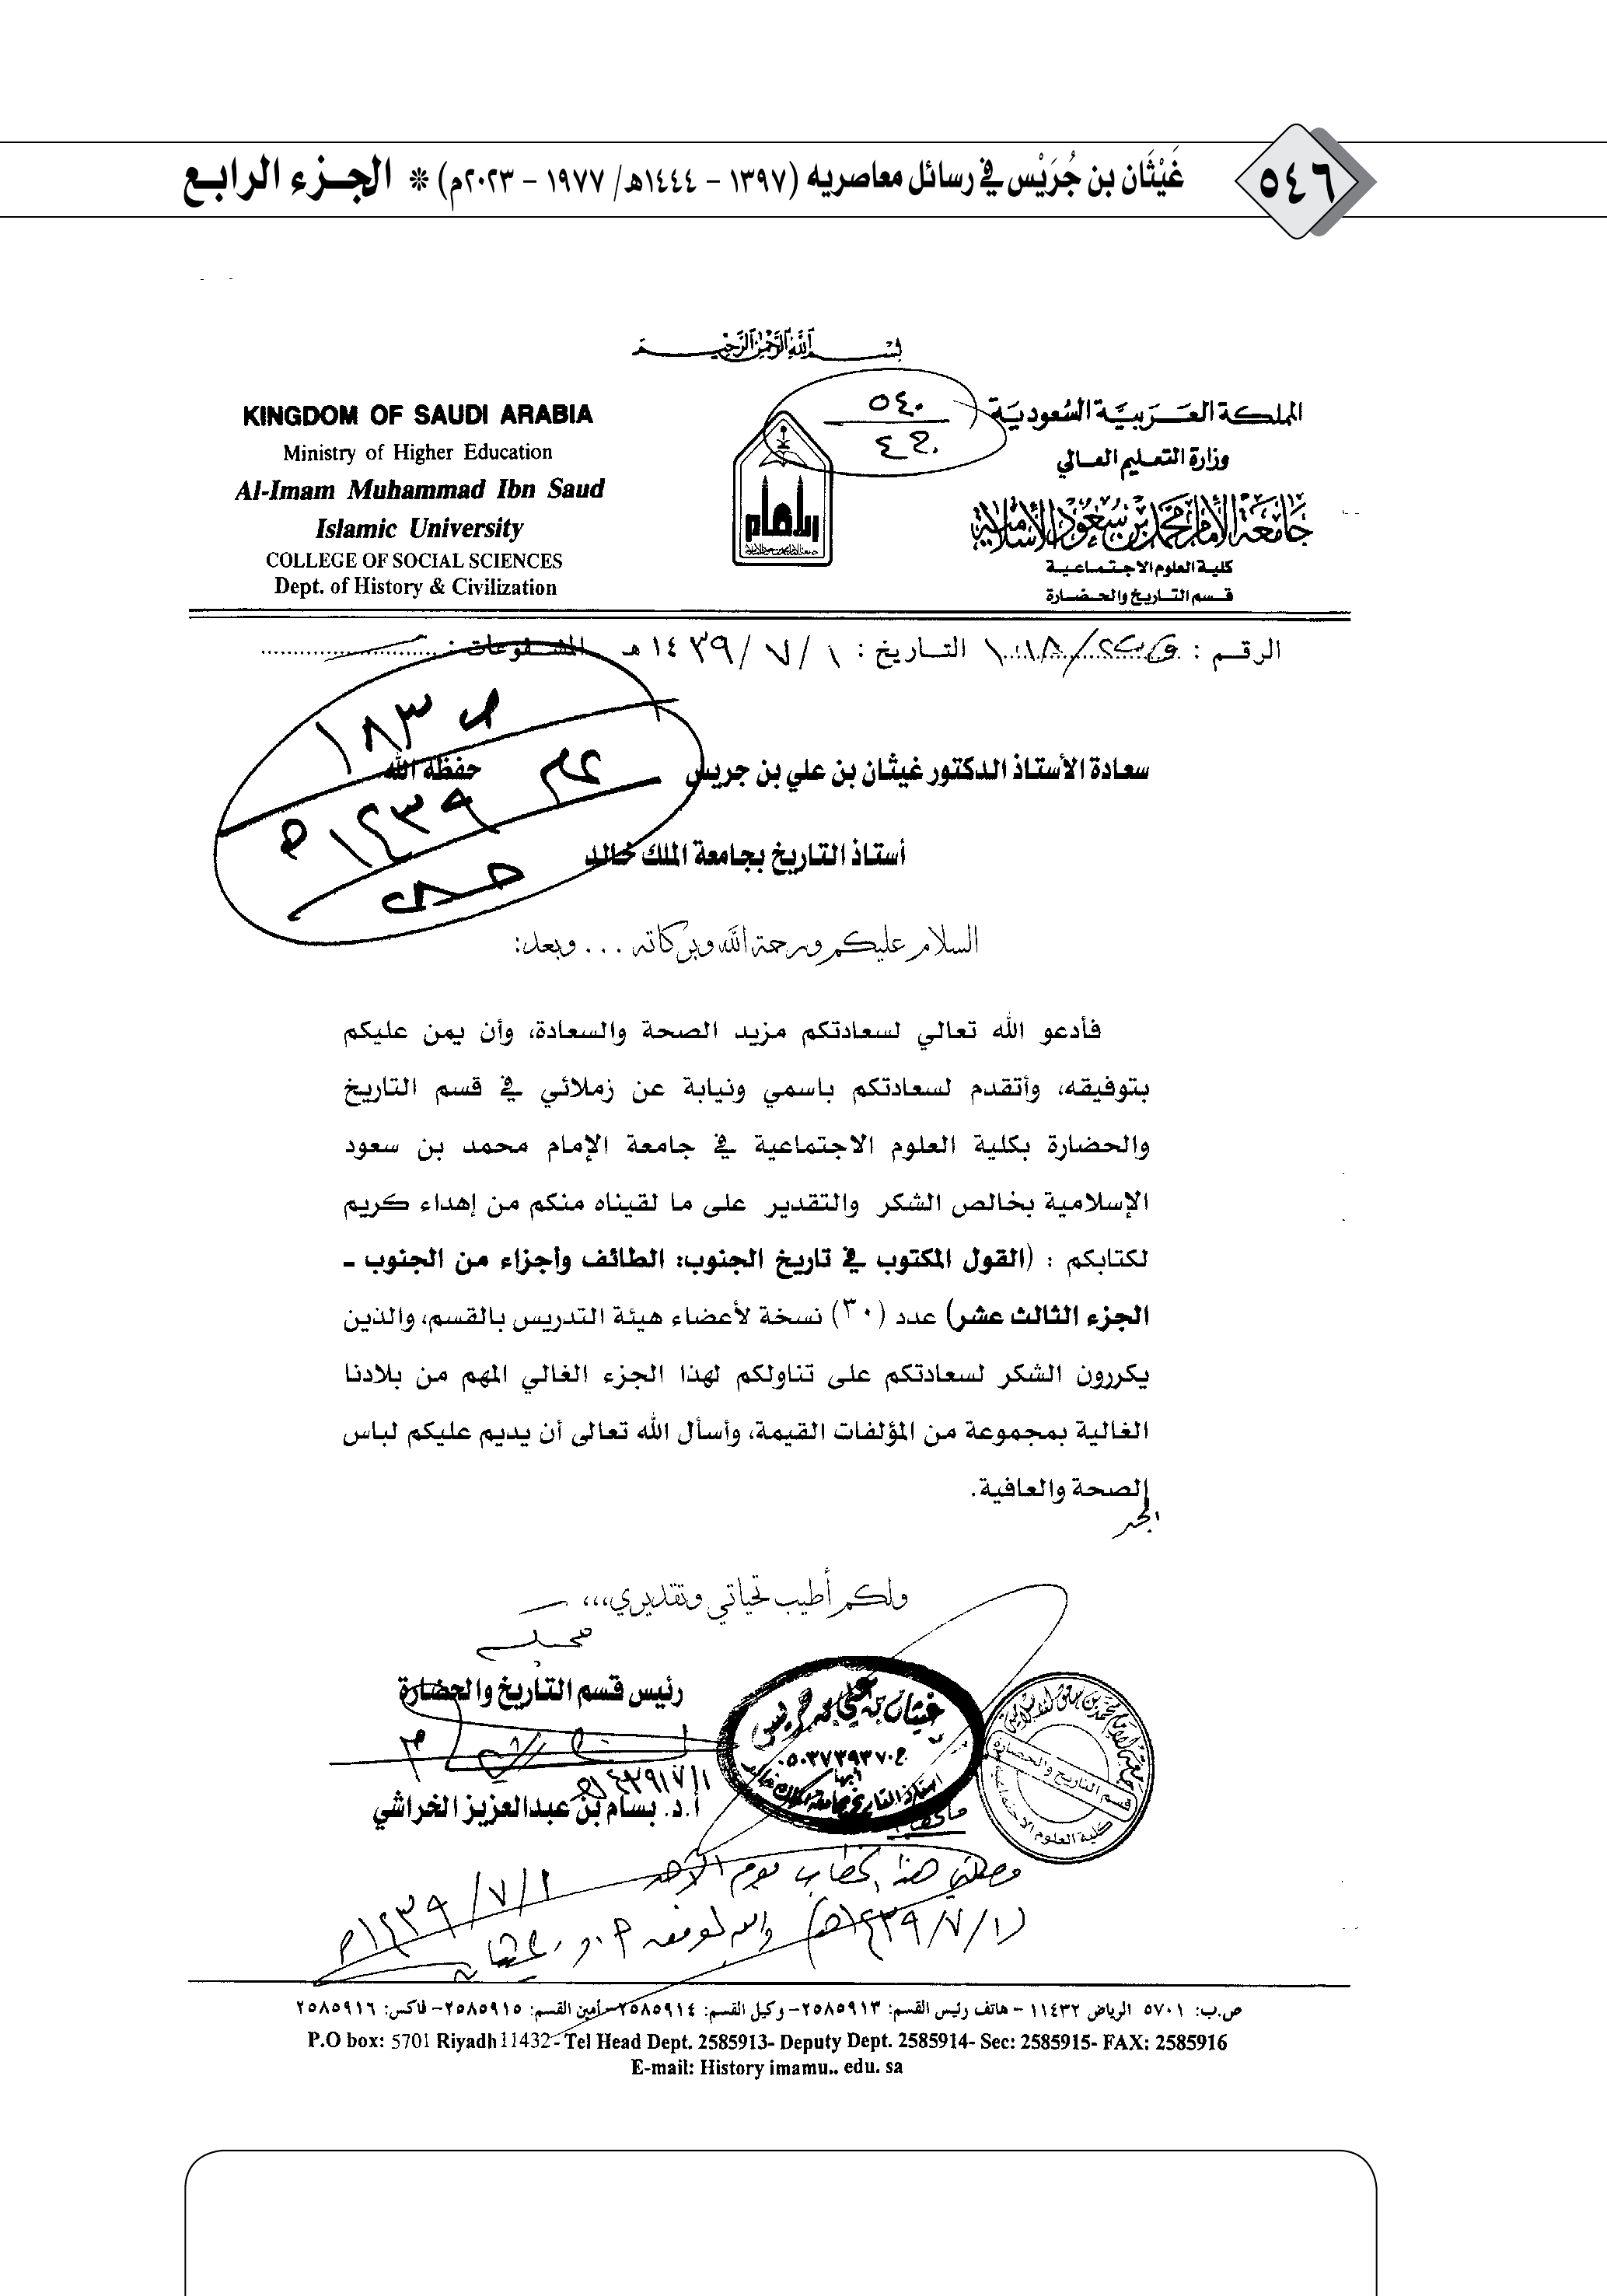 ٥٤٦
غَيْثَان بن جُرَيْس في رسائل معاصريه (١٣٩٧ - ١٤٤٤هـ/ ١٩٧٧ - ٢٠٢٣م) * الجزء الرابع
بسم الله الرحمن الرحيم
KINGDOM OF SAUDI ARABIA
Ministry of Higher Education
Al-Imam Muhammad Ibn Saud
Islamic University
COLLEGE OF SOCIAL SCIENCES
Dept. of History & Civilization
٥٤٠
المملكة العربية السعودية
وزارة التعليم العالي
جامعة الإمام محمد بن سعود الإسلامية
كلية العلوم الاجتماعية
قسم التاريخ والحضارة
الرقم : التاريخ : ١ / ٧ / ١٤٣٩ هـ المشفوعات :
ص ١٨٣
عام
١٤٣٩هـ
سعادة الأستاذ الدكتور غيثان بن علي بن جريس حفظه الله
أستاذ التاريخ بجامعة الملك خالد
السلام عليكم ورحمة الله وبركاته ... وبعد:
فأدعو الله تعالي لسعادتكم مزيد الصحة والسعادة، وأن يمن عليكم
بتوفيقه، وأتقدم لسعادتكم باسمي ونيابة عن زملائي في قسم التاريخ
والحضارة بكلية العلوم الاجتماعية في جامعة الإمام محمد بن سعود
الإسلامية بخالص الشكر والتقدير على ما لقيناه منكم من إهداء كريم
لكتابكم : (القول المكتوب في تاريخ الجنوب: الطائف وأجزاء من الجنوب ـ
الجزء الثالث عشر) عدد (٣٠) نسخة لأعضاء هيئة التدريس بالقسم، والذين
يكررون الشكر لسعادتكم على تناولكم لهذا الجزء الغالي المهم من بلادنا
الغالية بمجموعة من المؤلفات القيمة، وأسأل الله تعالى أن يديم عليكم لباس
الصحة والعافية.
ولكم أطيب تحياتي وتقديري،،،
رئيس قسم التاريخ والحضارة
١/٧/١٤٣٩هـ
أ.د. بسام بن عبدالعزيز الخراشي
غيثان بن علي بن جريس
ج ٠٥٠٣٧٣٩٣٧٠
أبها
أستاذ التاريخ بجامعة الملك خالد
قسم التاريخ والحضارة
كلية العلوم الاجتماعية
وصلني هذا الخطاب يوم الأحد
(١/٧/١٤٣٩هـ) والله الموفق
١/٧/١٤٣٩هـ
ص.ب: ٥٧٠١ الرياض ١١٤٣٢ - هاتف رئيس القسم: ٢٥٨٥٩١٣- وكيل القسم: ٢٥٨٥٩١٤- أمين القسم: ٢٥٨٥٩١٥- فاكس: ٢٥٨٥٩١٦
P.O box: 5701 Riyadh 11432 - Tel Head Dept. 2585913- Deputy Dept. 2585914- Sec: 2585915- FAX: 2585916
E-mail: History imamu.. edu. sa